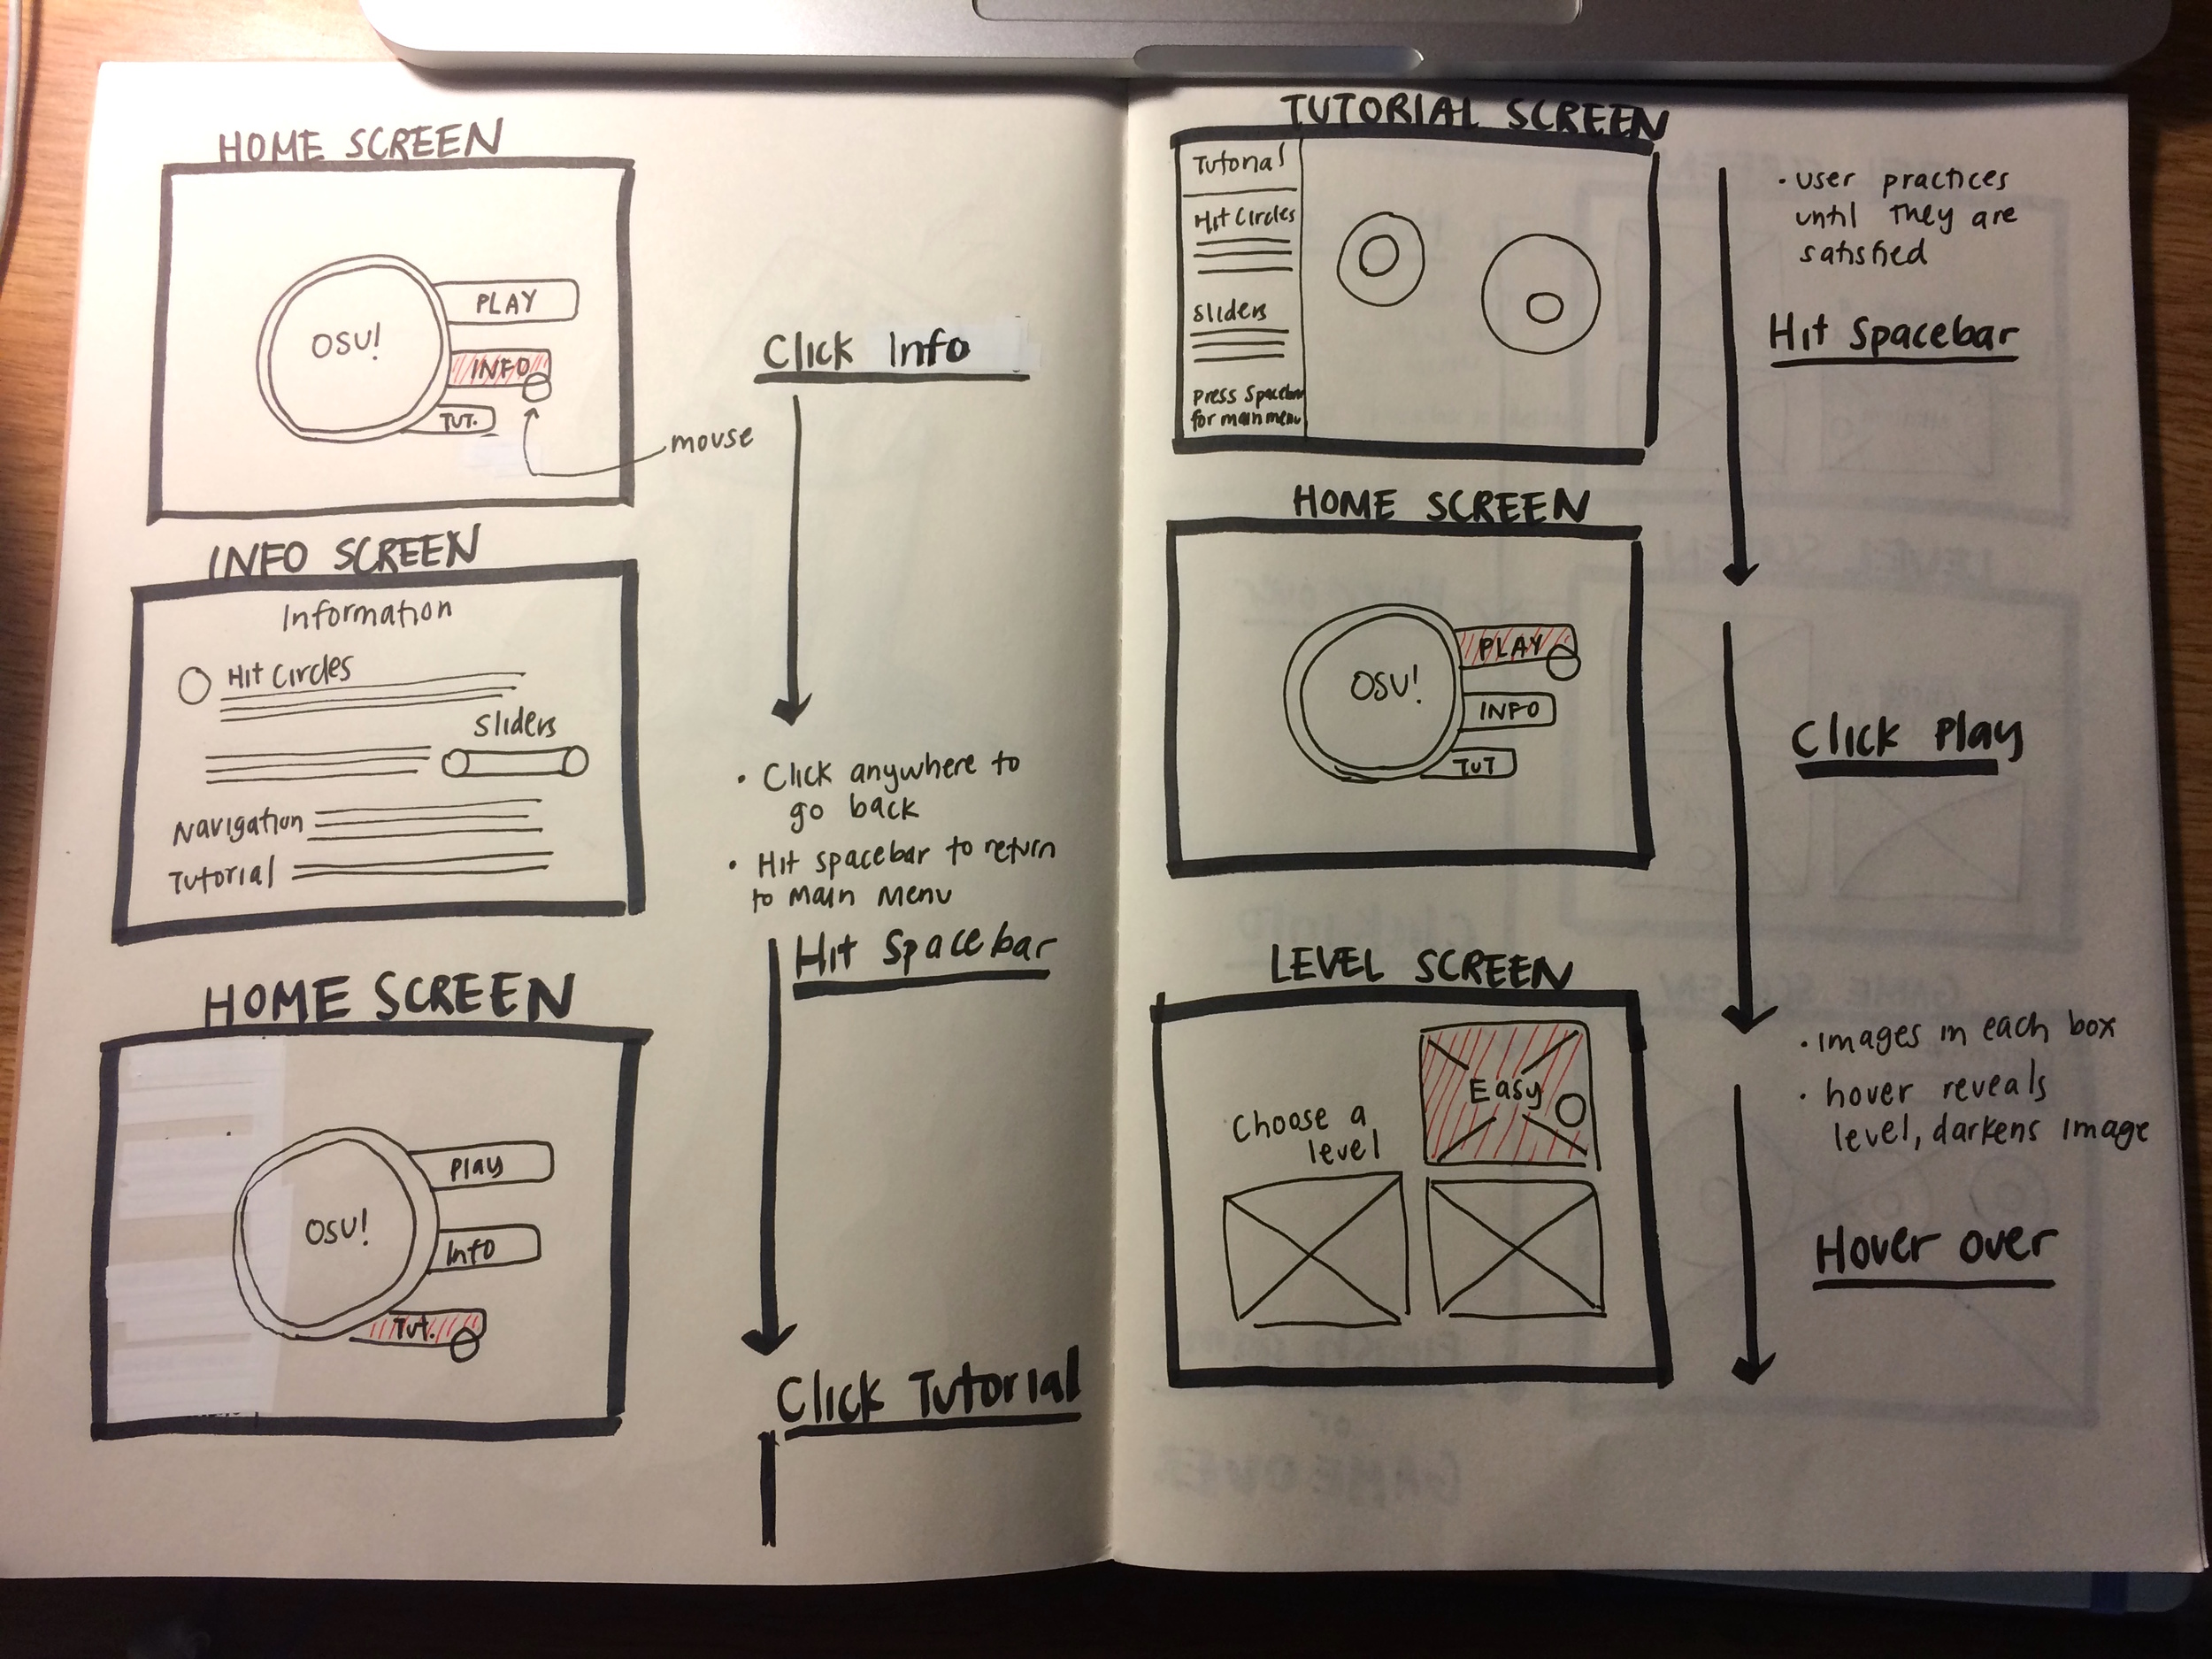 HOME SCREEN
OSU!
PLAY
INFO
TUT.
mouse
Click Info
INFO SCREEN
Information
Hit Circles
Sliders
Navigation
Tutorial
• Click anywhere to
go back
• Hit spacebar to return
to Main Menu
Hit Spacebar
HOME SCREEN
OSU!
Play
Info
Tut.
Click Tutorial
TUTORIAL SCREEN
Tutorial
Hit Circles
Sliders
press Spacebar
for main menu
• user practices
until they are
satisfied
Hit Spacebar
HOME SCREEN
OSU!
PLAY
INFO
TUT
Click Play
LEVEL SCREEN
Choose a
level
Easy
• images in each box
• hover reveals
level, darkens image
Hover over